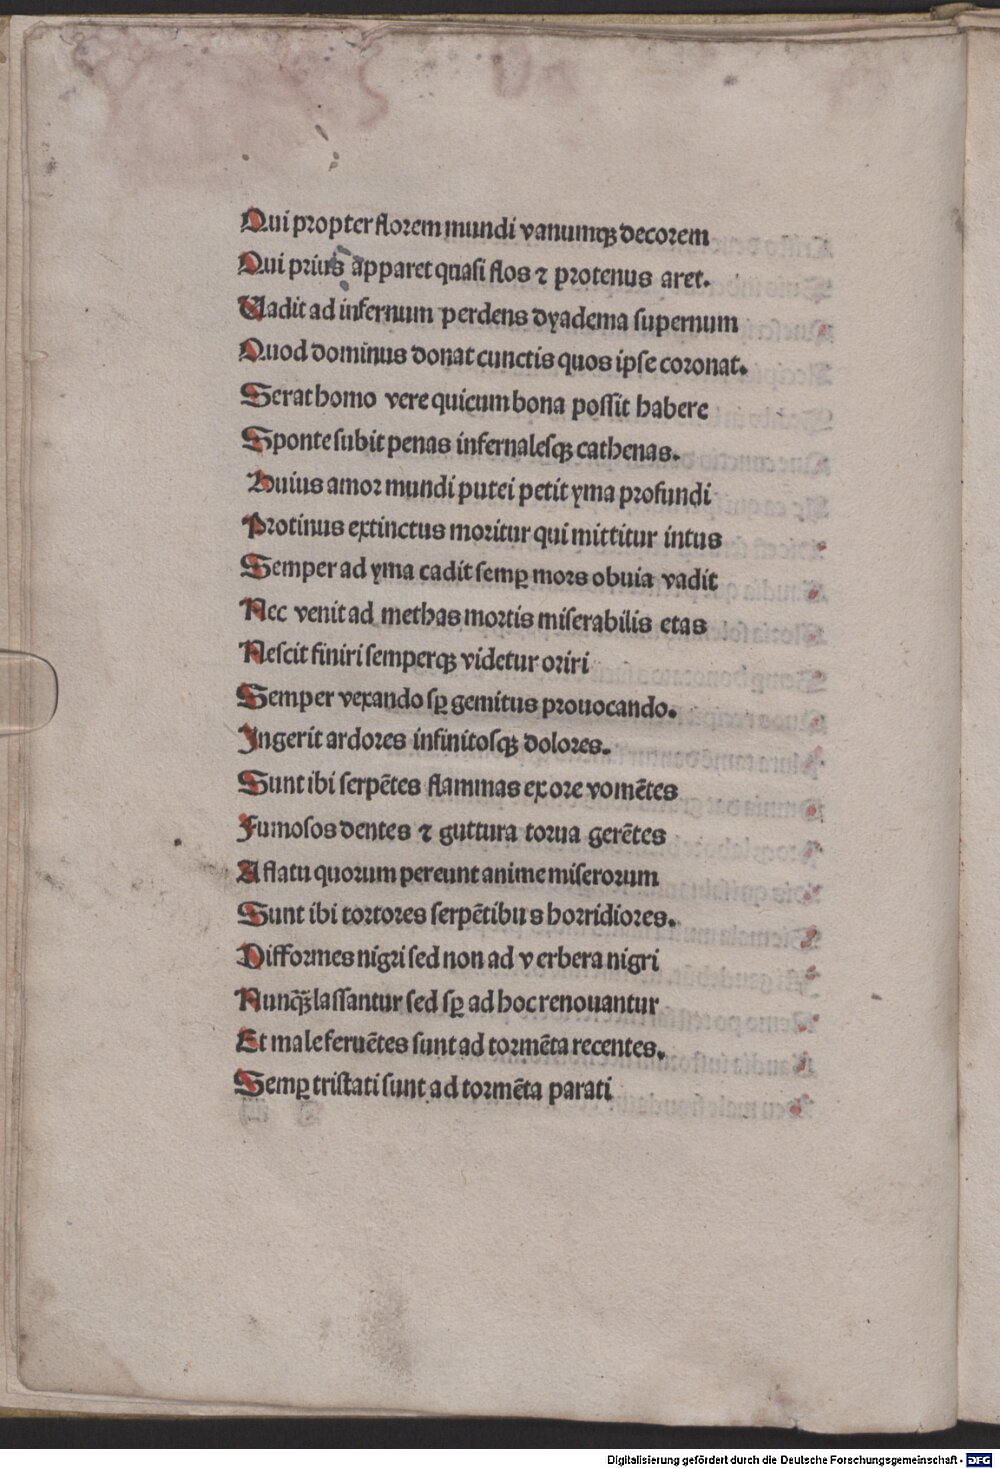 Qui propter florem mundi vanumqꝫ decorem
Qui prius apparet quasi flos ⁊ protenus aret.
Vadit ad infernum perdens dyadema supernum
Quod dominus donat cunctis quos ipse coronat.
Serat homo vere qui cum bona possit habere
Sponte subit penas infernalesqꝫ cathenas.
Huius amor mundi putei petit yma profundi
Protinus extinctus moritur qui mittitur intus
Semper ad yma cadit semꝑ mors obuia vadit
Nec venit ad methas mortis miserabilis etas
Nescit finiri semperqꝫ videtur oriri
Semper vexando sꝑ gemitus prouocando.
Ingerit ardores infinitosqꝫ dolores.
Sunt ibi serpētes flammas ex ore vomētes
Fumosos dentes ⁊ guttura torua gerētes
A flatu quorum pereunt anime miserorum
Sunt ibi tortores serpētibus horridiores.
Difformes nigri sed non ad verbera nigri
Nunqꝫ̄ lassantur sed sꝑ ad hoc renouantur
Et male feruētes sunt ad tormēta recentes.
Semꝑ tristati sunt ad tormēta parati
Digitalisierung gefördert durch die Deutsche Forschungsgemeinschaft - DFG